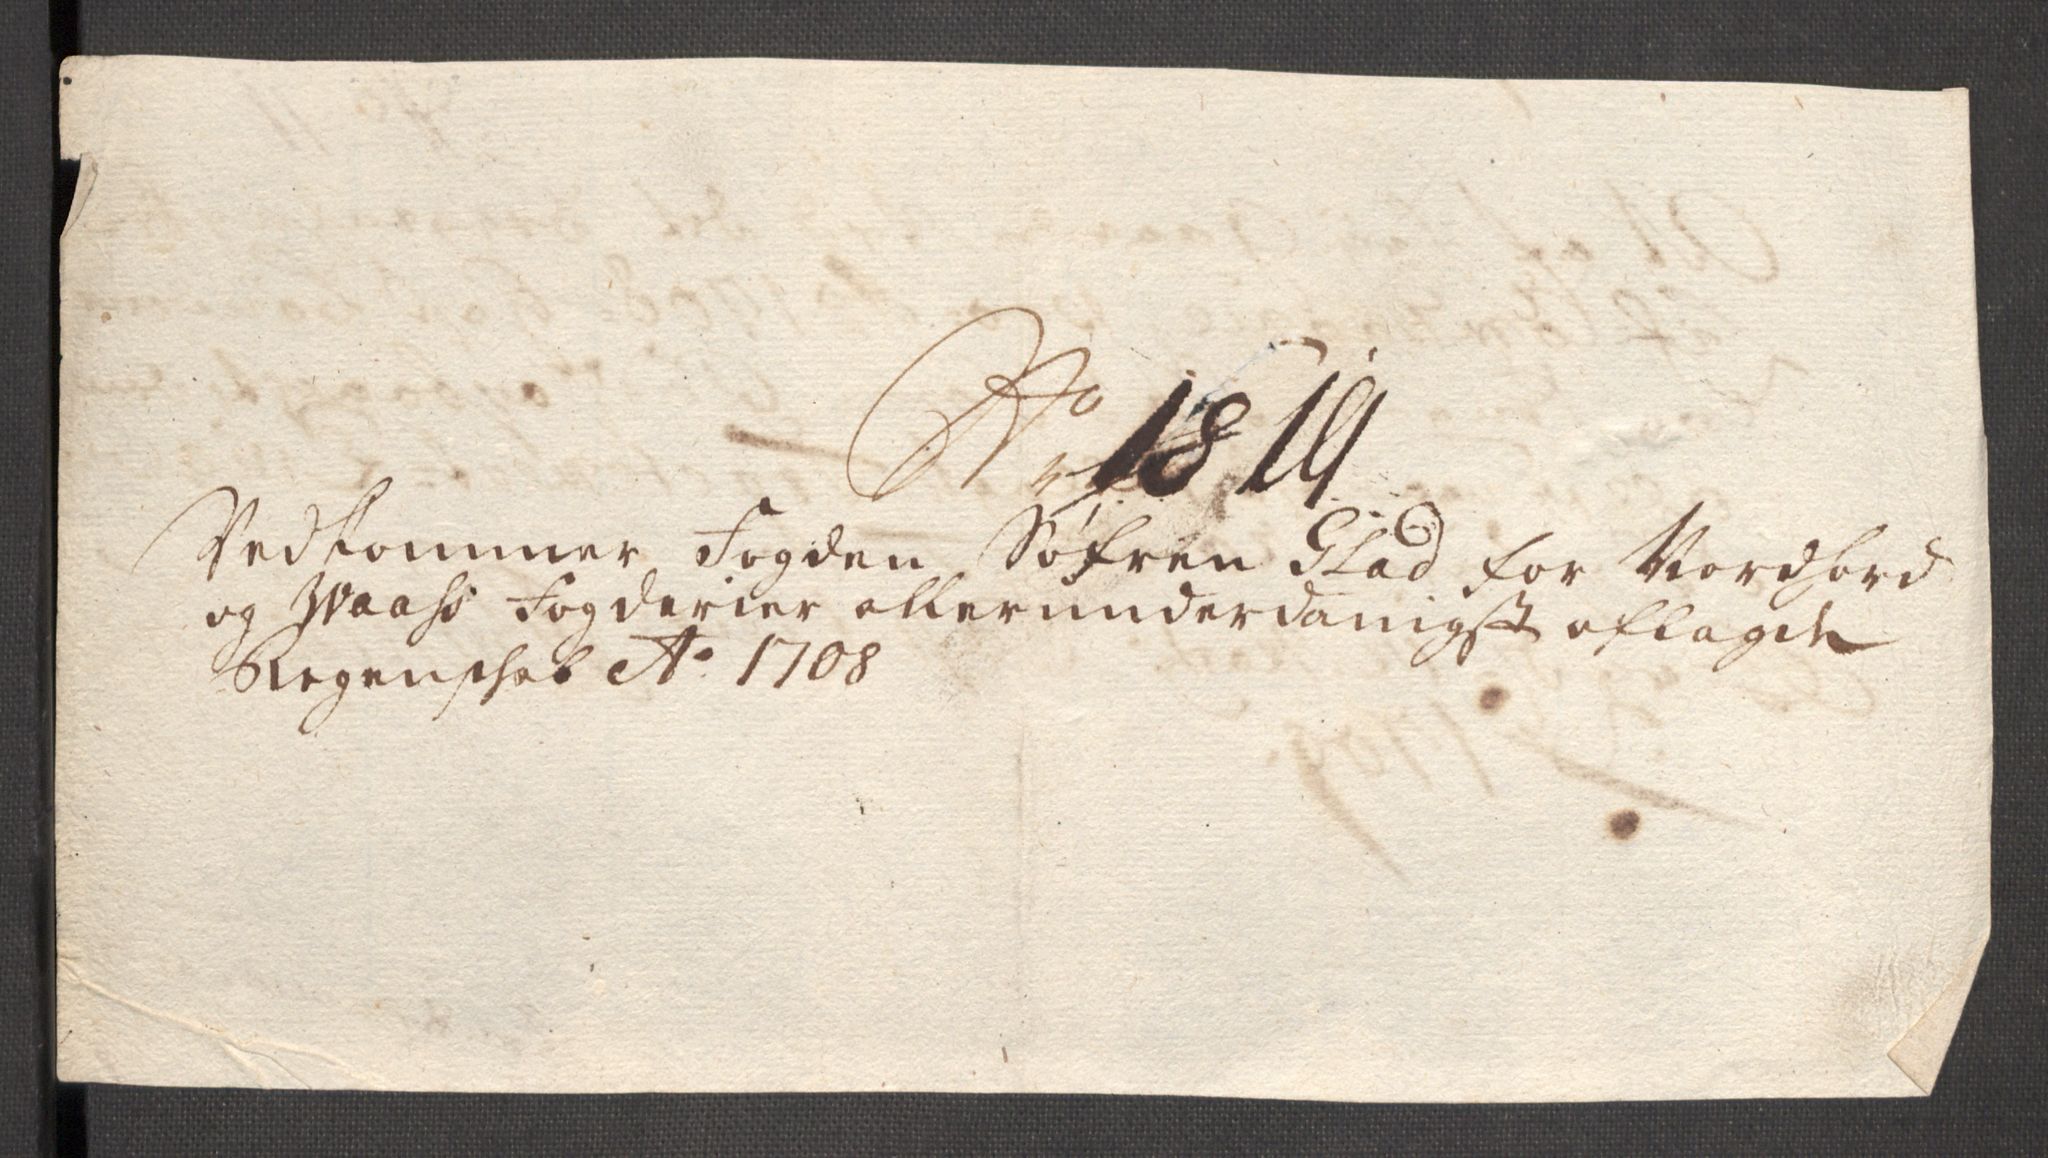 No 18
Vedkommer Fogden Søfren Glad for Nordhord
og Waass Fogderier allerunderdanigst aflagde
Regenschab Ao. 1708